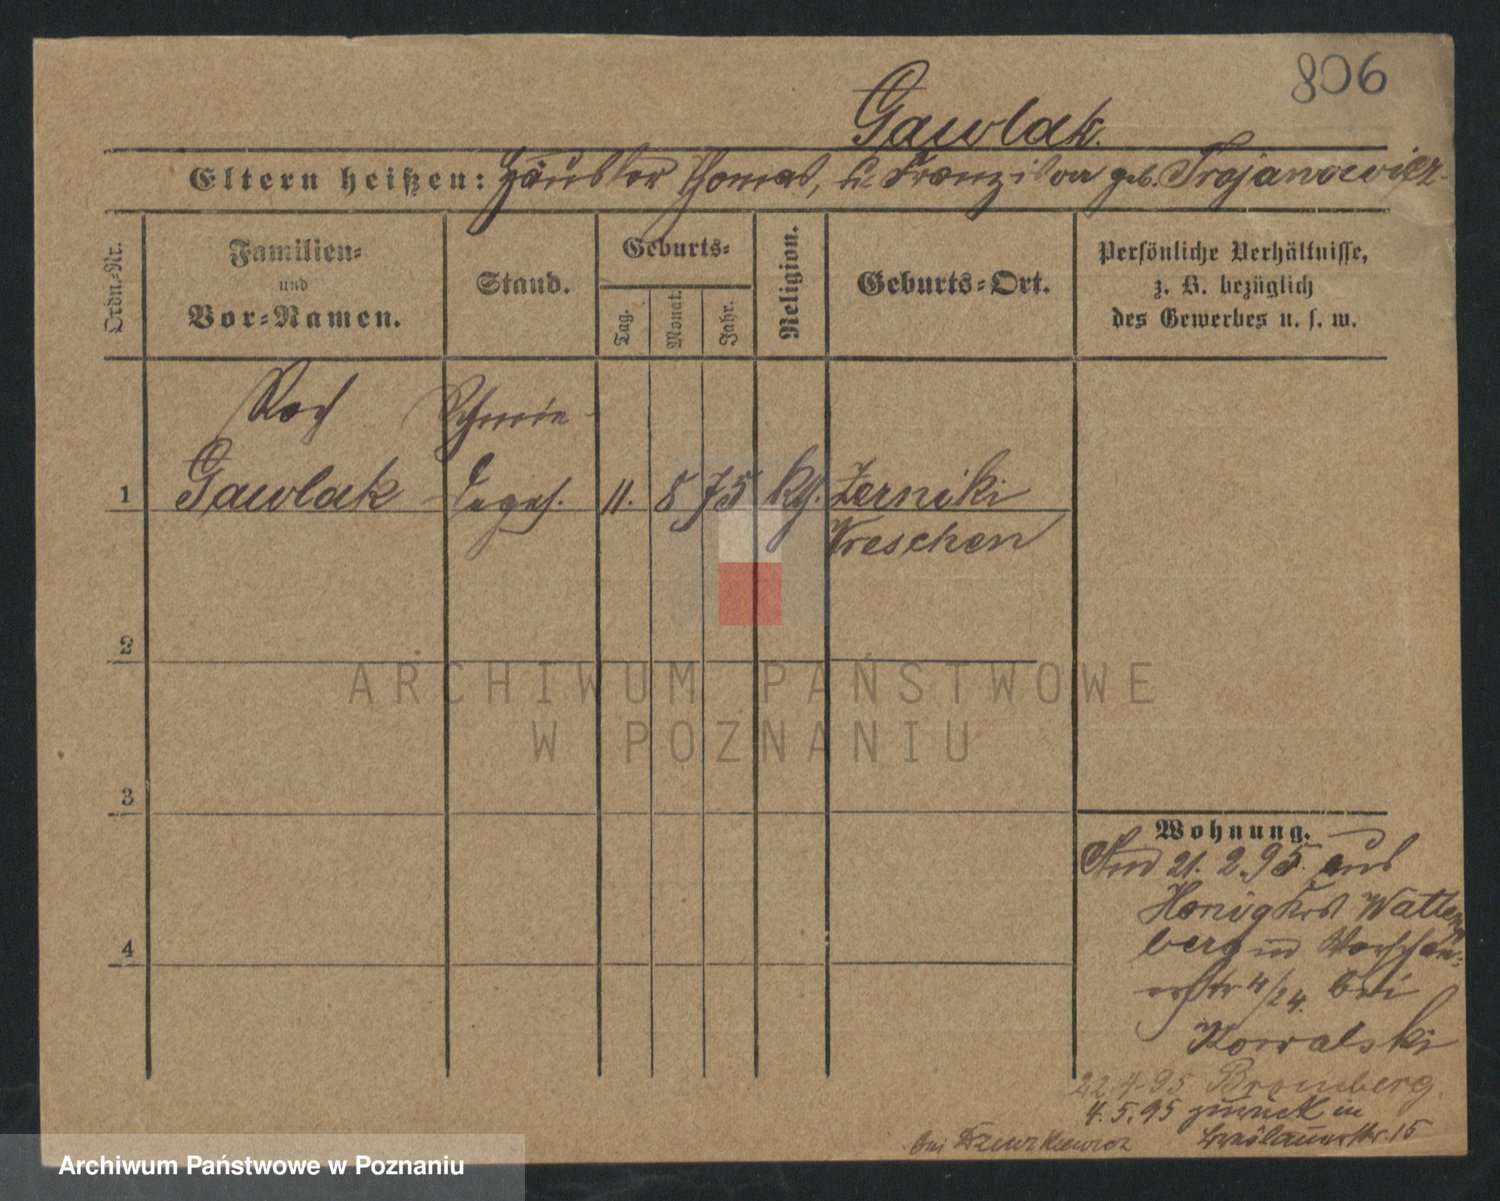 806
Gawlak.
Eltern heißen: Häusler Thomas, u. Franziska geb. Trojanowicz
Ordn.-Nr.
Familien-
und
Vor-Namen.
Stand.
Geburts-
Tag.
Monat.
Jahr.
Religion.
Geburts-Ort.
Persönliche Verhältnisse,
z. B. bezüglich
des Gewerbes u. s. w.
Roch Schmie-
1 Gawlak deges. 11. 8 75 kth. Zerniki
Wreschen
2
3
4
Wohnung.
21. 2. 95. aus
Watten
berg in
4/24. bei
Kowalski
22.4.95 Bromberg.
4.5.95 zurück in
bei Breslauerstr. 15
ARCHIWUM PAŃSTWOWE
W POZNANIU
Archiwum Państwowe w Poznaniu